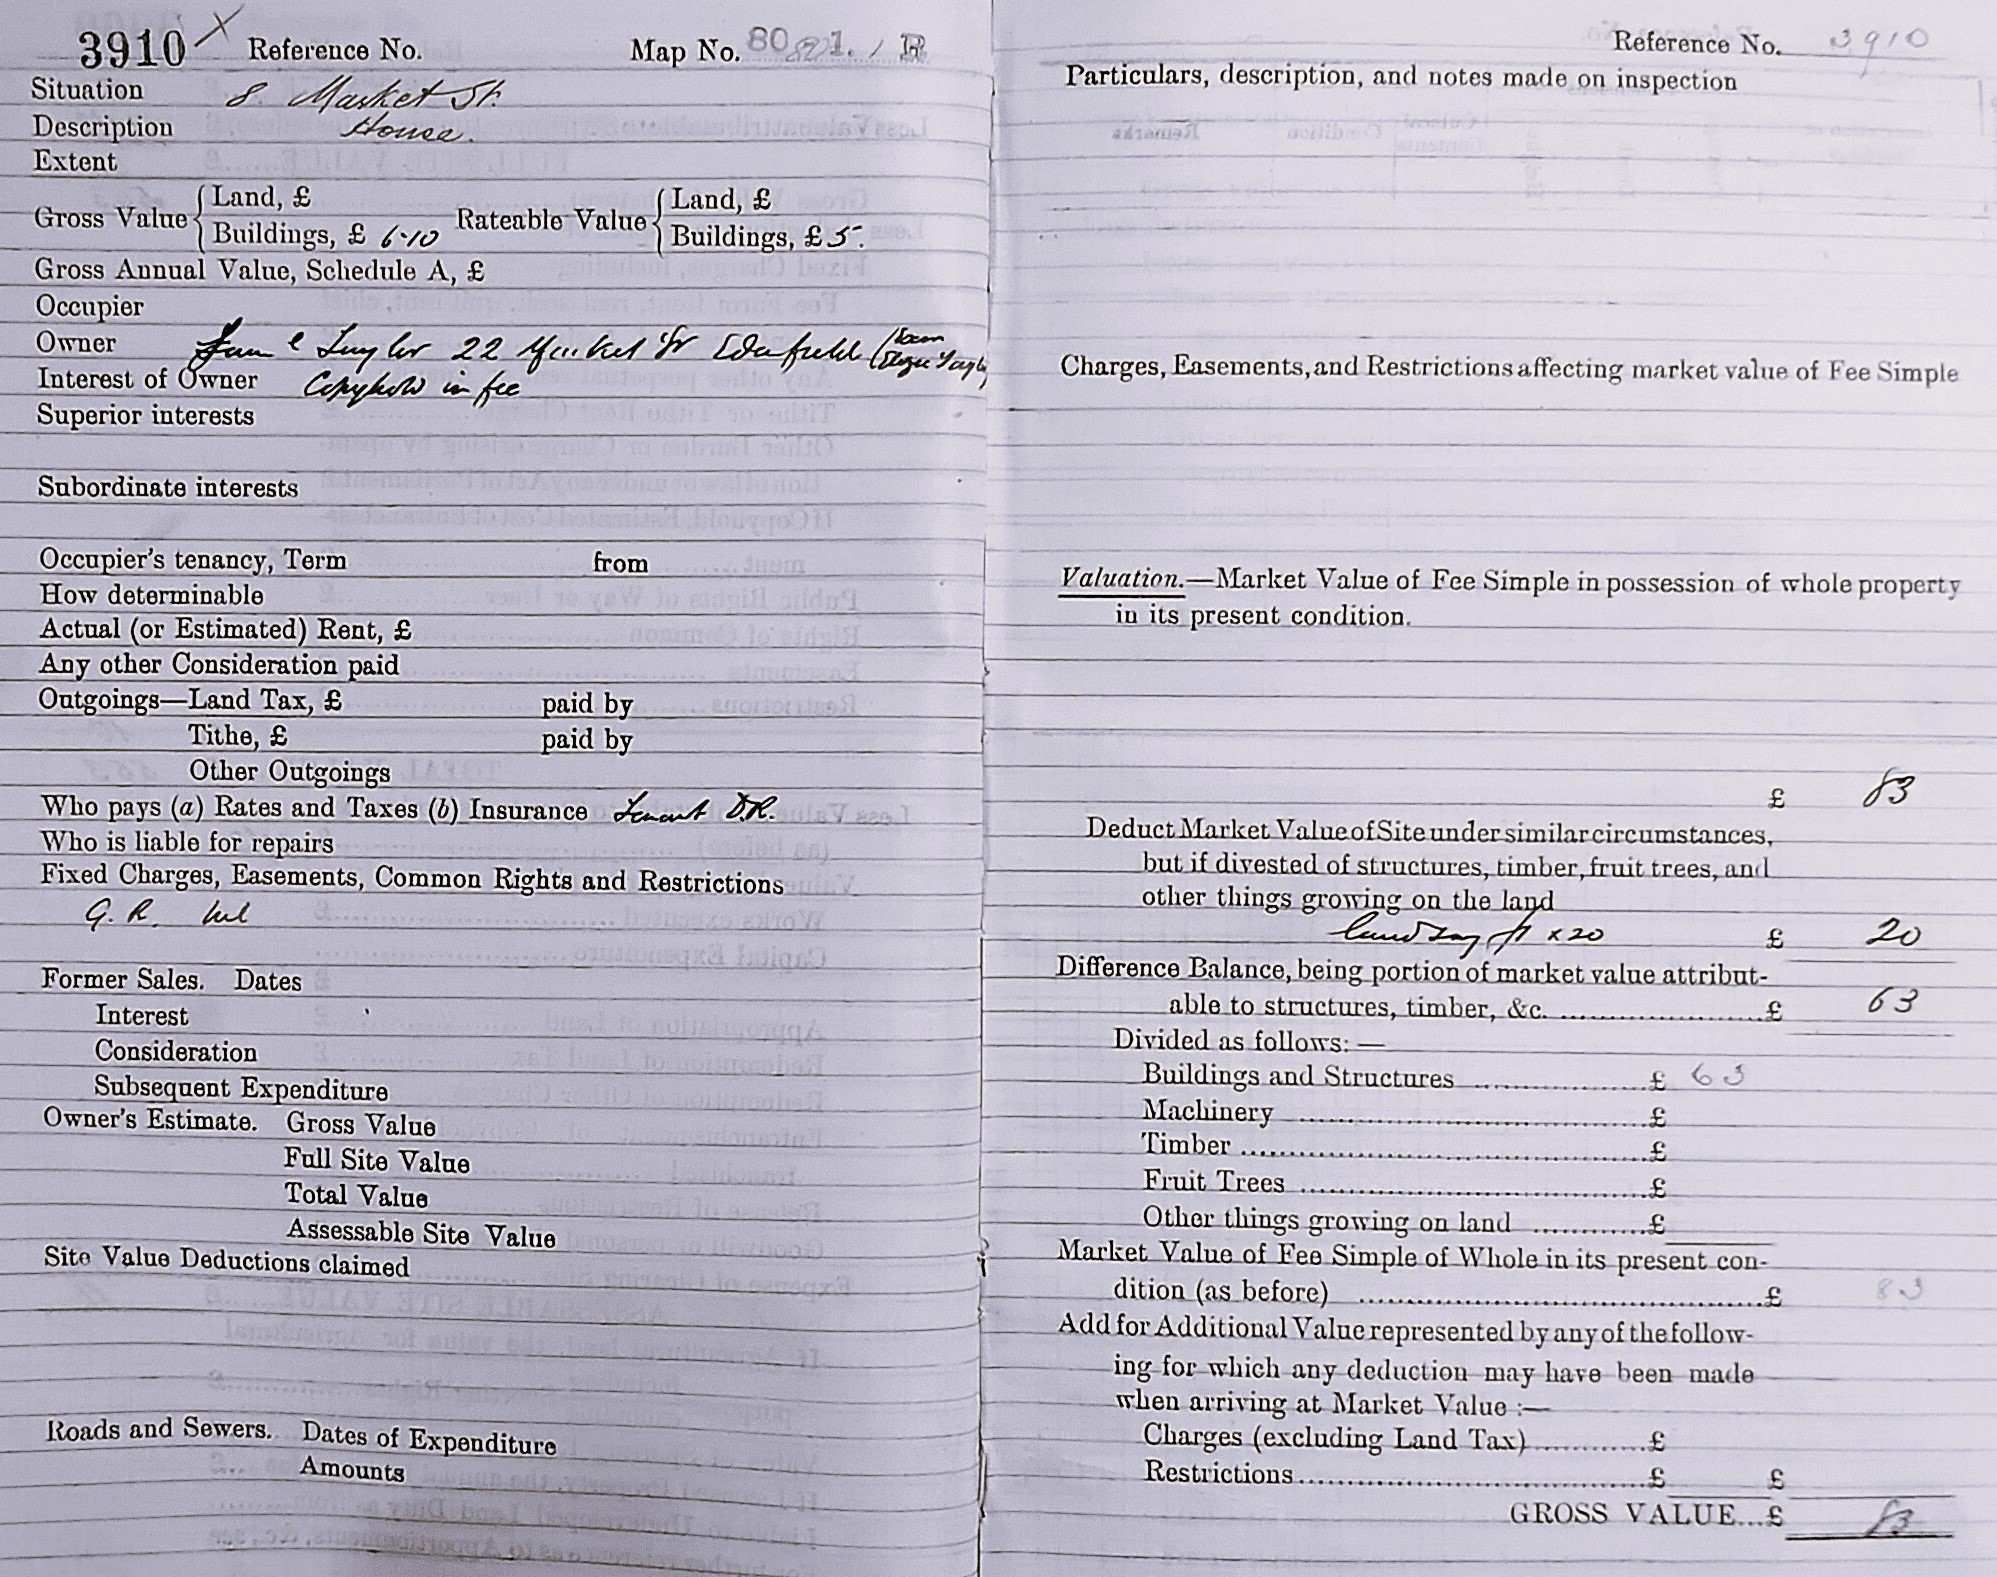 3910 X Reference No. Map No. 80 1. R
Situation 8 Market St.
Description House.
Extent
Gross Value { Land, £
Buildings, £ 6-10
Rateable Value { Land, £
Buildings, £ 5-.
Gross Annual Value, Schedule A, £
Occupier
Owner Taylor 22 Market St Edenfield
Interest of Owner Copyhold in fee
Superior interests
Subordinate interests
Occupier's tenancy, Term from
How determinable
Actual (or Estimated) Rent, £
Any other Consideration paid
Outgoings—Land Tax, £ paid by
Tithe, £ paid by
Other Outgoings
Who pays (a) Rates and Taxes (b) Insurance Tenant
Who is liable for repairs
Fixed Charges, Easements, Common Rights and Restrictions
G. R. Nil
Former Sales. Dates
Interest
Consideration
Subsequent Expenditure
Owner's Estimate. Gross Value
Full Site Value
Total Value
Assessable Site Value
Site Value Deductions claimed
Roads and Sewers. Dates of Expenditure
Amounts
Reference No. 3910
Particulars, description, and notes made on inspection
Charges, Easements, and Restrictions affecting market value of Fee Simple
Valuation.—Market Value of Fee Simple in possession of whole property
in its present condition.
£ 83
Deduct Market Value of Site under similar circumstances,
but if divested of structures, timber, fruit trees, and
other things growing on the land
Land say £1 x 20 £ 20
Difference Balance, being portion of market value attribut-
able to structures, timber, &c. £ 63
Divided as follows: —
Buildings and Structures £ 63
Machinery £
Timber £
Fruit Trees £
Other things growing on land £
Market Value of Fee Simple of Whole in its present con-
dition (as before) £ 83
Add for Additional Value represented by any of the follow-
ing for which any deduction may have been made
when arriving at Market Value :—
Charges (excluding Land Tax) £
Restrictions £ £
GROSS VALUE...£ 83